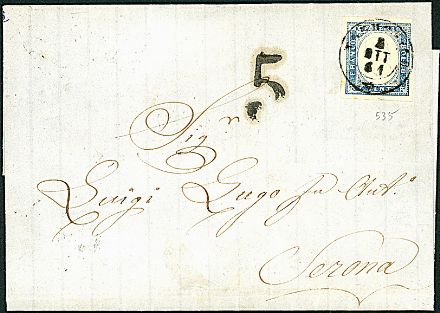 4
OTT
61
5
535
Sigr
Luigi Lugo fu Ant.o
Serona